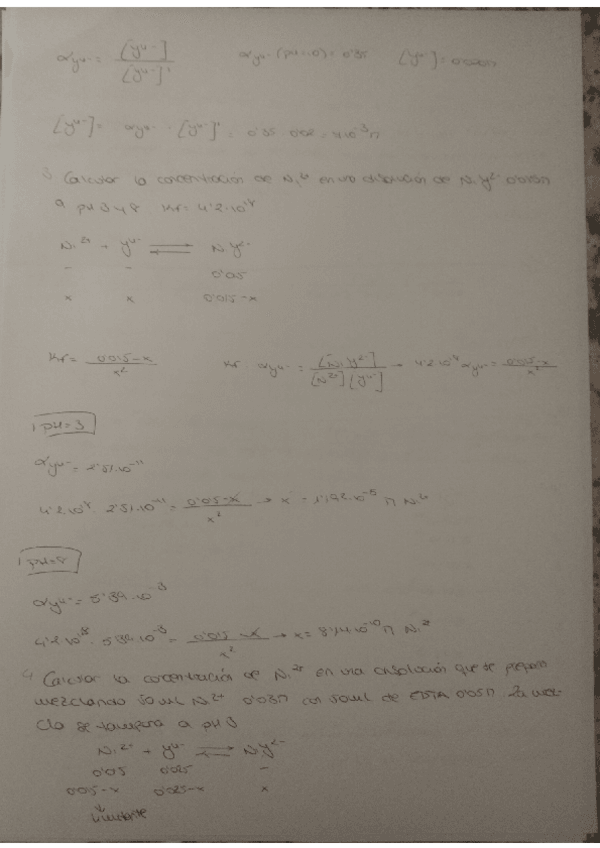 αy⁴⁻ = [y⁴⁻] / [y⁴⁻]' αy⁴⁻ (pH=10) = 0'35 [y⁴⁻]'=
[y⁴⁻] = αy⁴⁻ · [y⁴⁻]' = 0'35 · 0'02 =
3 Calcular la concentración de Ni²⁺ en una disolución de Niy²⁻ 0'015M
a pH 3 y 8. Kf =
Ni²⁺ + y⁴⁻ ⇌ Niy²⁻
- - 0'015
x x 0'015-x
Kf = 0'015-x / x² Kf · αy⁴⁻ = [Niy²⁻] / [Ni²⁺][y⁴⁻]' → αy⁴⁻ = 0'015-x / x²
pH=3
αy⁴⁻ = 2'51·10⁻¹¹
2'51·10⁻¹¹ = 0'015-x / x² → x = M Ni²⁺
pH=8
αy⁴⁻ = 5'39·10⁻³
5'39·10⁻³ = 0'015-x / x² → x = M Ni²⁺
4 Calcular la concentración de Ni²⁺ en una disolución que se prepara
mezclando 50mL Ni²⁺ 0'03M con 50mL de EDTA 0'05M. La mez-
cla se tampona a pH 3
Ni²⁺ + y⁴⁻ ⇌ Niy²⁻
0'015 0'025 -
0'015-x 0'025-x x
Limitante